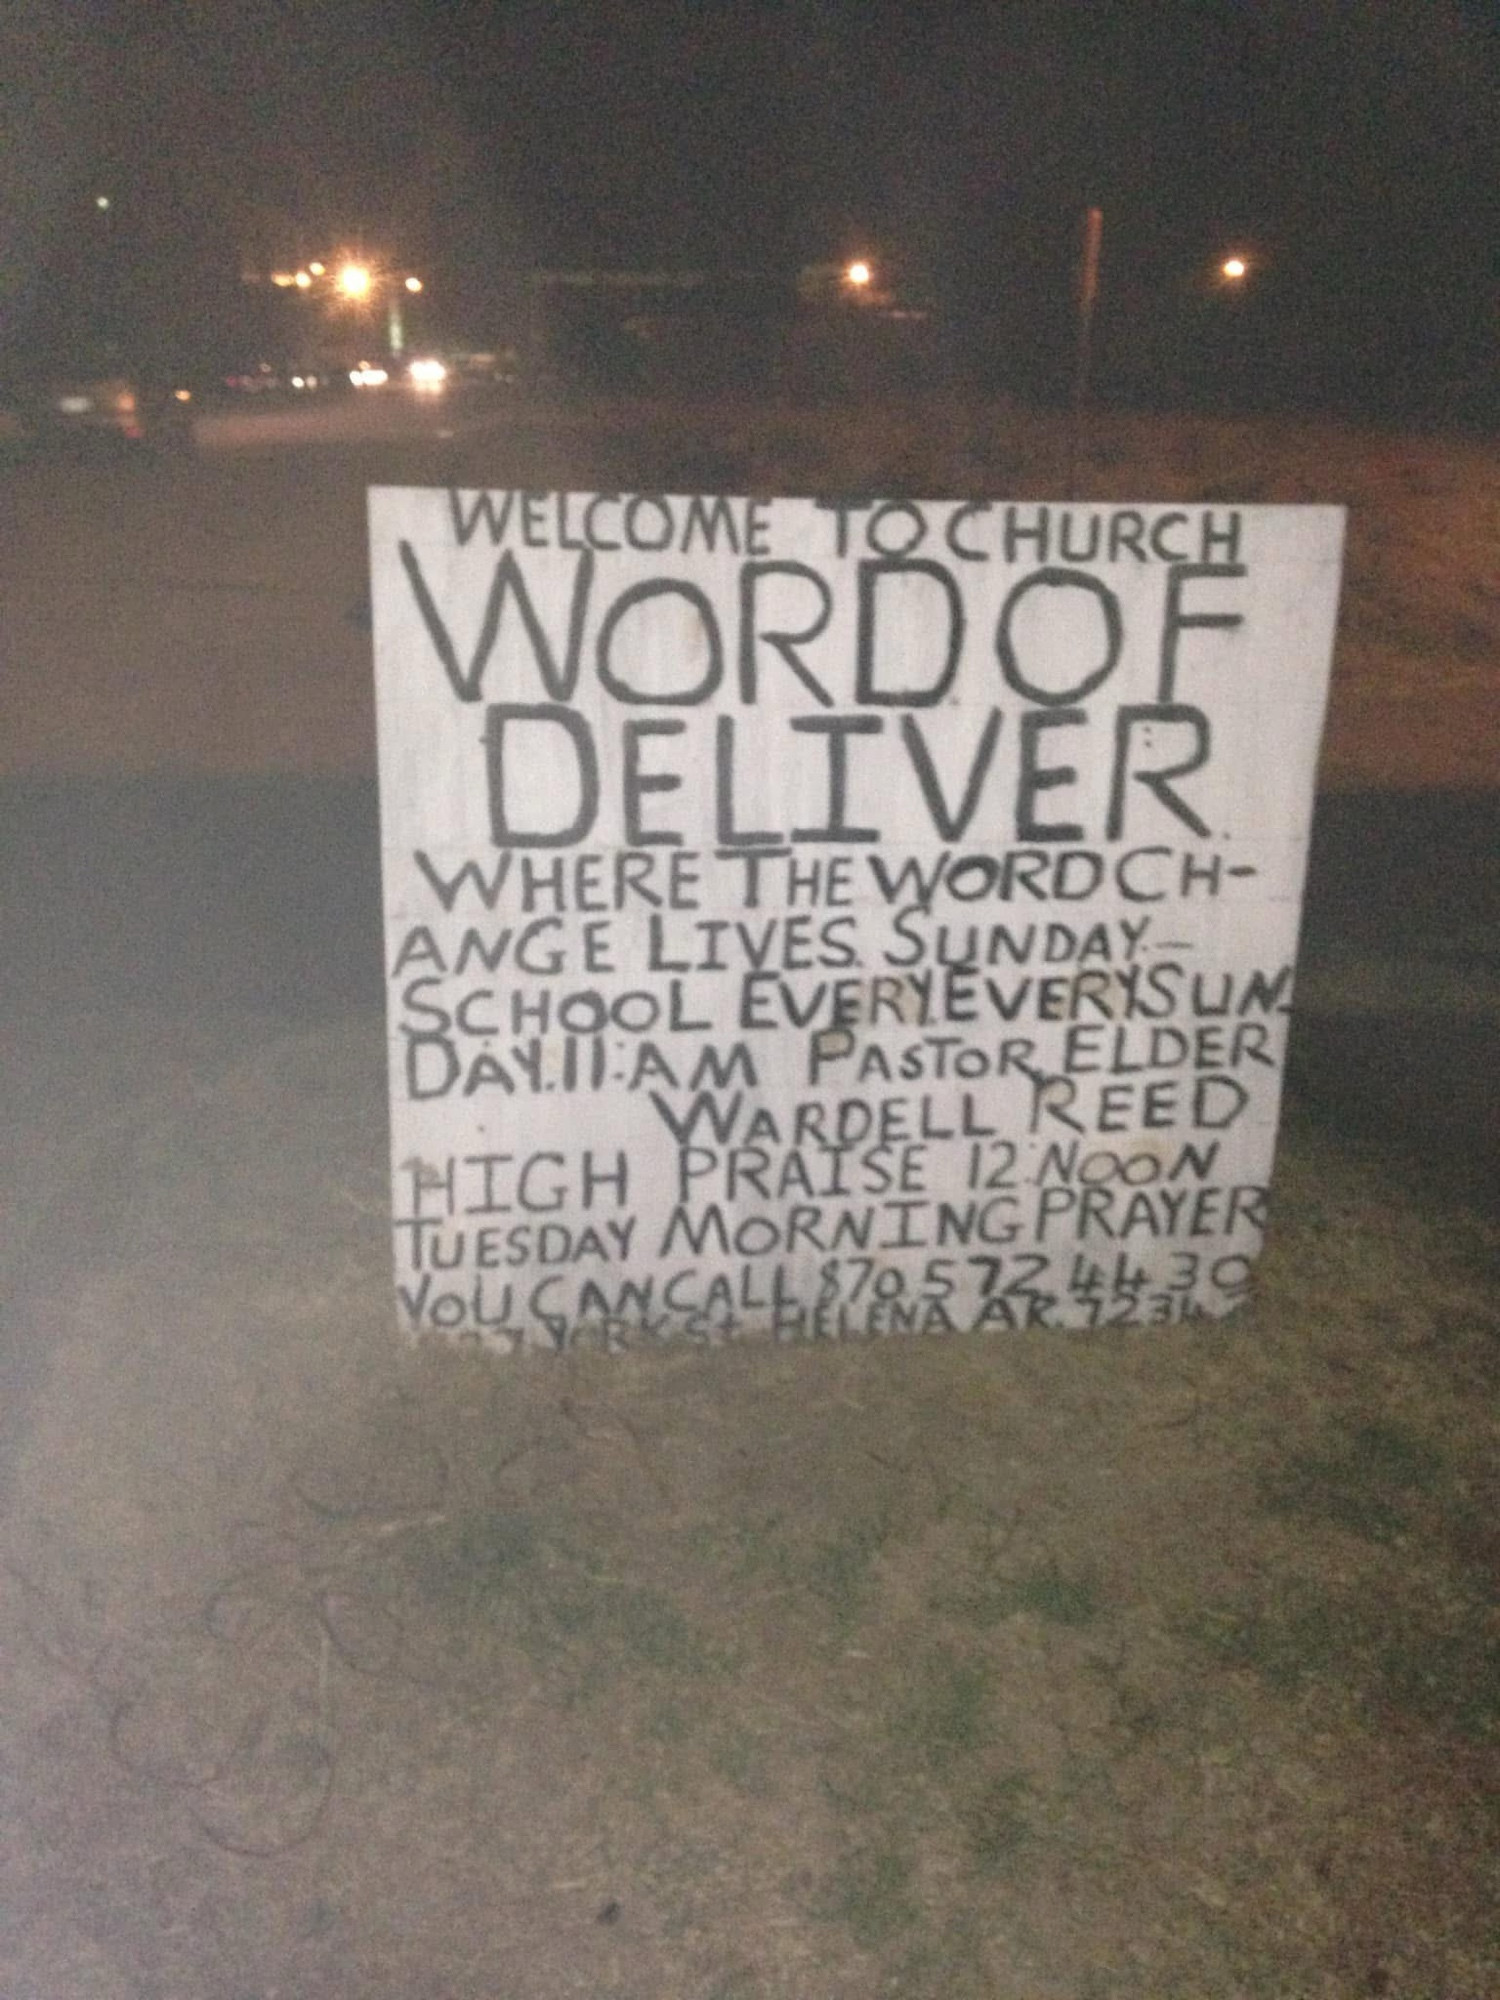 WELCOME TO CHURCH
WORD OF
DELIVER.
WHERE THE WORD CH-
ANGE LIVES. SUNDAY-
SCHOOL EVERY.EVERY SUN-
DAY.11:AM PASTOR, ELDER
WARDELL REED
HIGH PRAISE 12:NOON
TUESDAY MORNING PRAYER
YOU CAN CALL 870 572 4430
YORK St. HELENA AR.